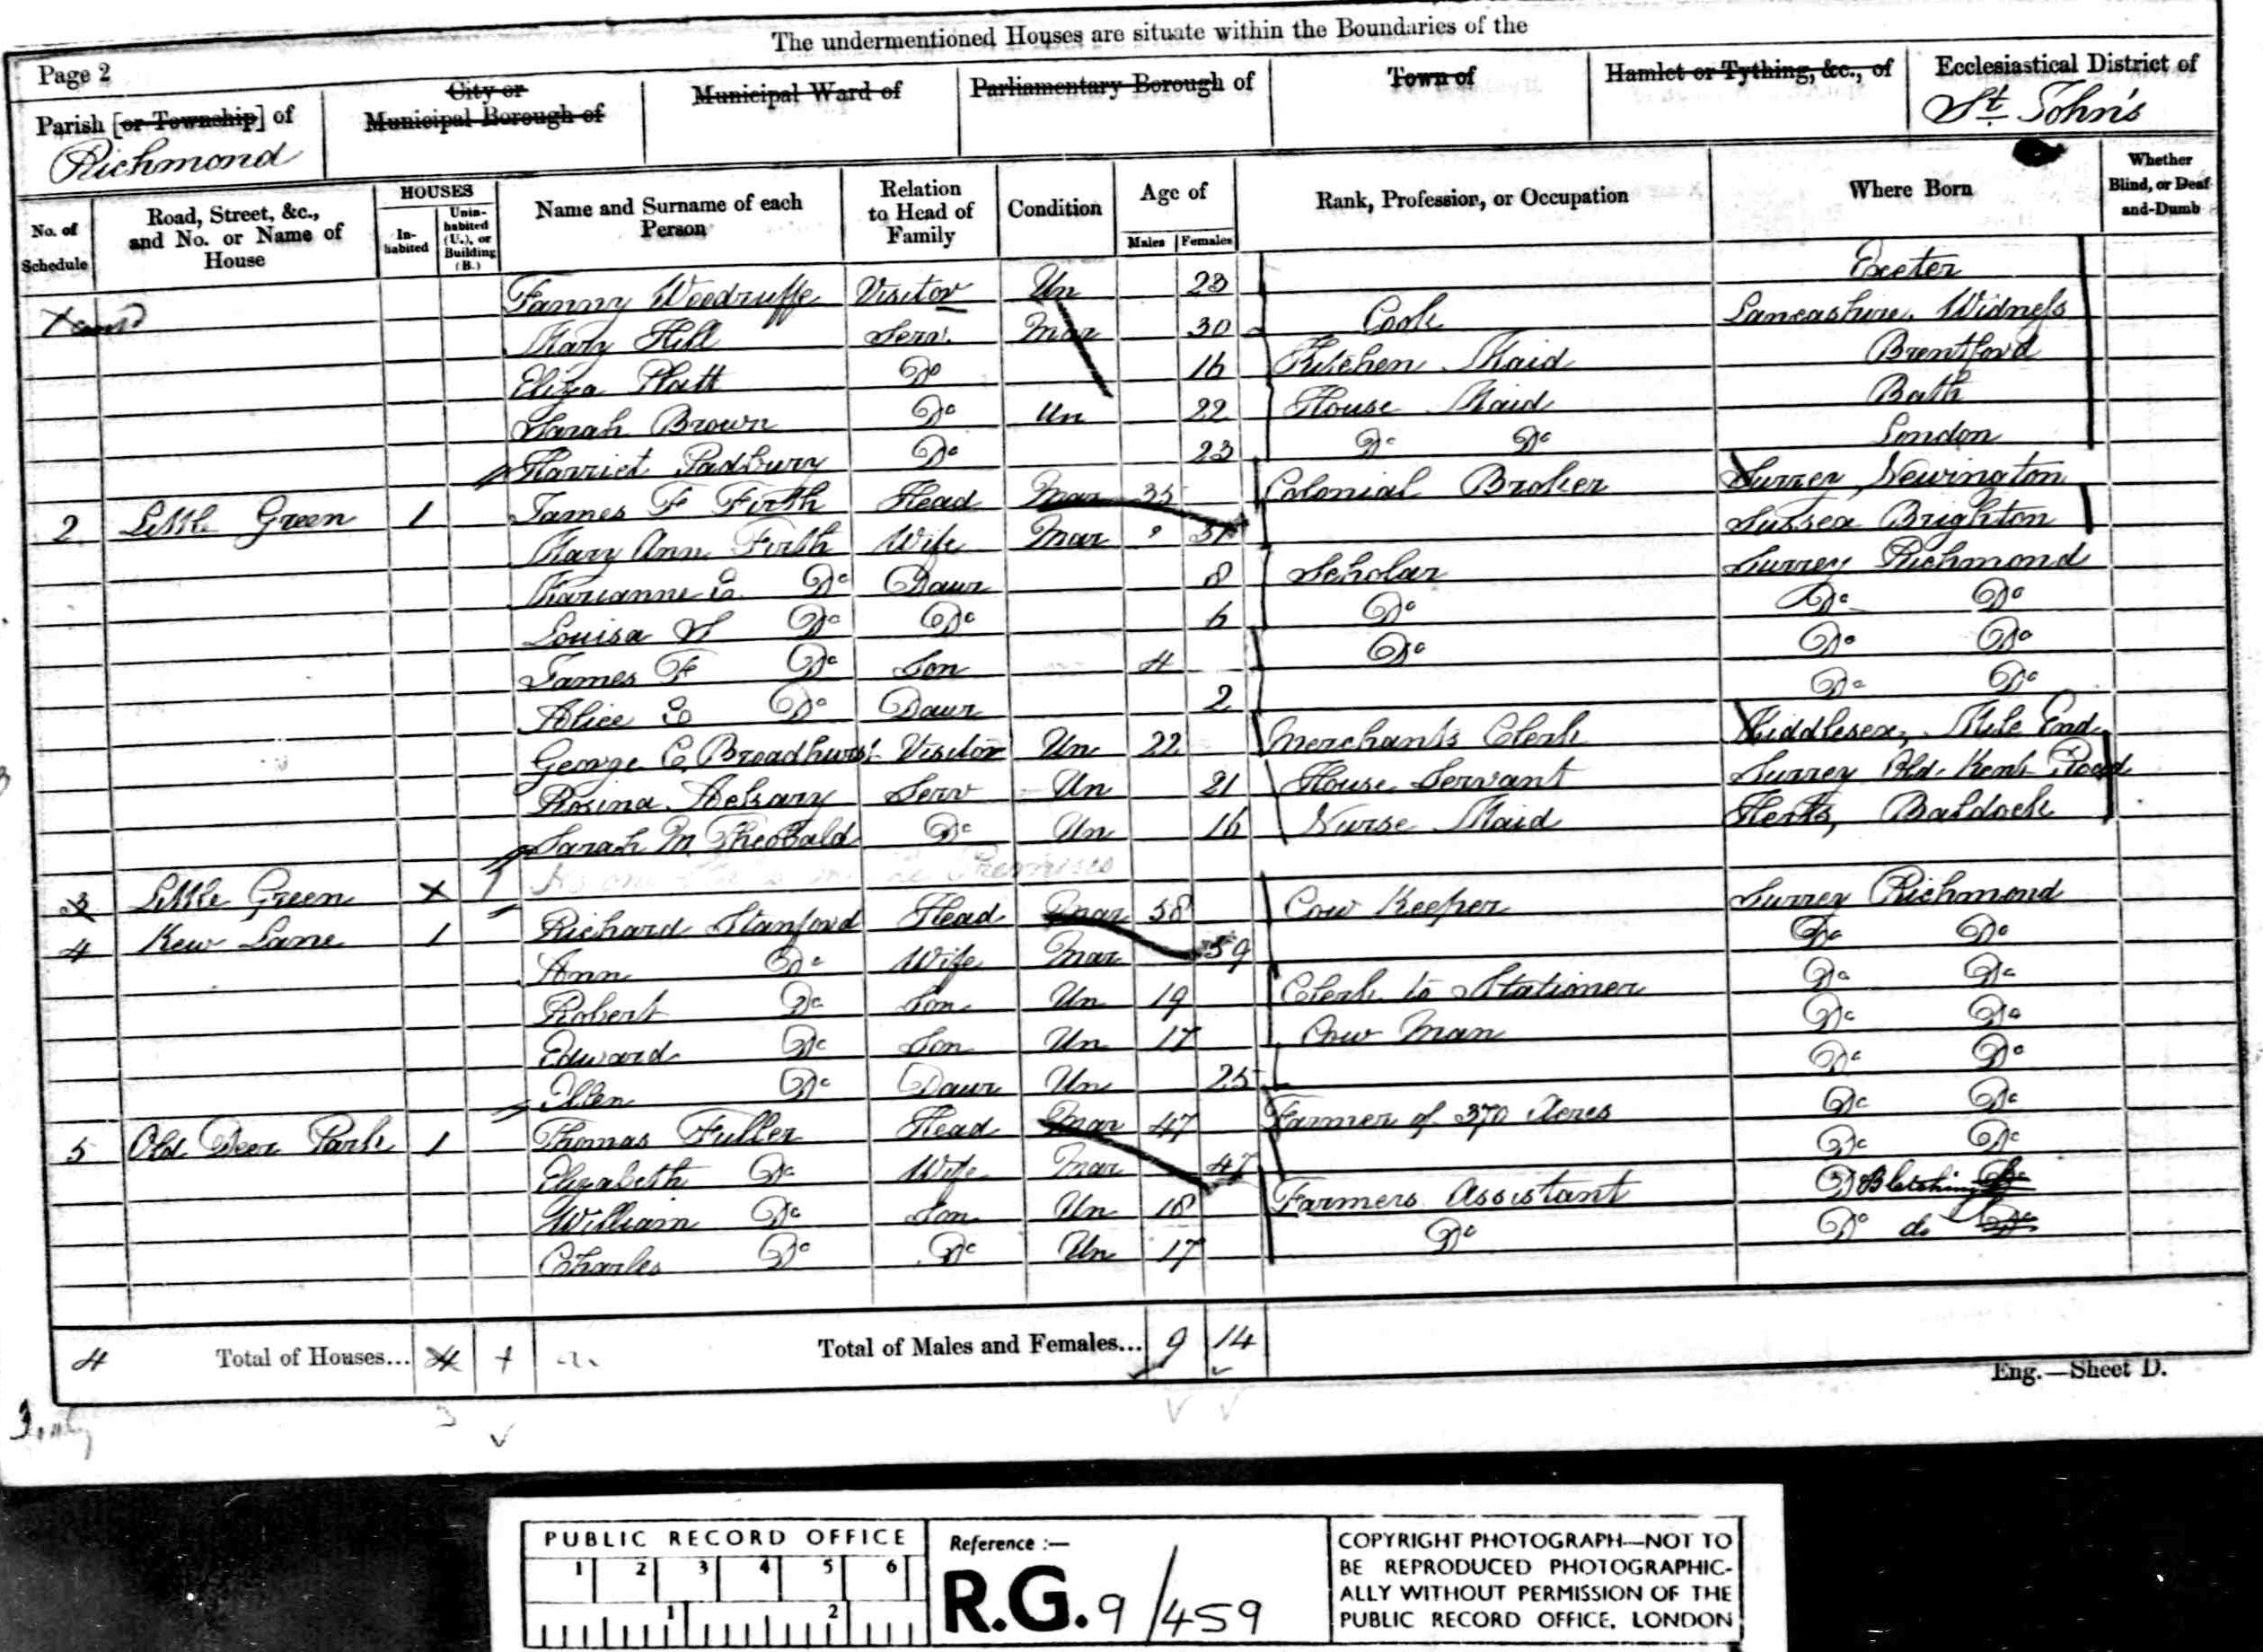 The undermentioned Houses are situate within the Boundaries of the
Page 2
Parish [or Township] of
Richmond
City or
Municipal Borough of
Municipal Ward of
Parliamentary Borough of
Town of
Hamlet or Tything, &c., of
Ecclesiastical District of
St. John's
No. of Schedule
Road, Street, &c., and No. or Name of House
HOUSES
In-habited
Unin-habited (U.), or Building (B.)
Name and Surname of each Person
Relation to Head of Family
Condition
Age of
Males Females
Rank, Profession, or Occupation
Where Born
Whether Blind, or Deaf-and-Dumb
Fanny Woodruffe Visitor Un 23 Exeter
Mary Hill Serv. Mar 30 Cook Lancashire, Widness
Eliza Platt Do 16 Kitchen Maid Brentford
Sarah Brown Do Un 22 House Maid Bath
Harriet Padbury Do 23 Do Do London
2 Little Green 1 James F Firth Head Mar 35 Colonial Broker Surrey, Newington
Mary Ann Firth Wife Mar 31 Sussex Brighton
Marianne E. Do Daur 8 Scholar Surrey Richmond
Louisa Do Do 6 Do Do Do
James F Do Son 4 Do Do Do
Alice E Do Daur 2 Do Do
George C. Broadhurst Visitor Un 22 Merchants Clerk Middlesex, Mile End
Rosina Serv Un 21 House Servant Surrey Old Kent Road
Sarah M Theobald Do Un 16 Nurse Maid Herts, Baldock
3 Little Green x Premises
4 Kew Lane 1 Richard Stanford Head Mar 58 Cow Keeper Surrey Richmond
Ann Do Wife Mar 59 Do Do
Robert Do Son Un 19 Clerk to Stationer Do Do
Edward Do Son Un 17 Cow Man Do Do
Ellen Do Daur Un 25 Do Do
5 Old Deer Park 1 Thomas Fuller Head Mar 47 Farmer of 370 Acres Do Do
Elizabeth Do Wife Mar 47 Do Do
William Do Son Un 18 Farmers Assistant Do
Charles Do Do Un 17 Do Do do Do
4 Total of Houses... 4 Total of Males and Females... 9 14
Eng.—Sheet D.
PUBLIC RECORD OFFICE
1 2 3 4 5 6
1 2
Reference :—
R.G. 9/459
COPYRIGHT PHOTOGRAPH—NOT TO
BE REPRODUCED PHOTOGRAPHIC-
ALLY WITHOUT PERMISSION OF THE
PUBLIC RECORD OFFICE, LONDON